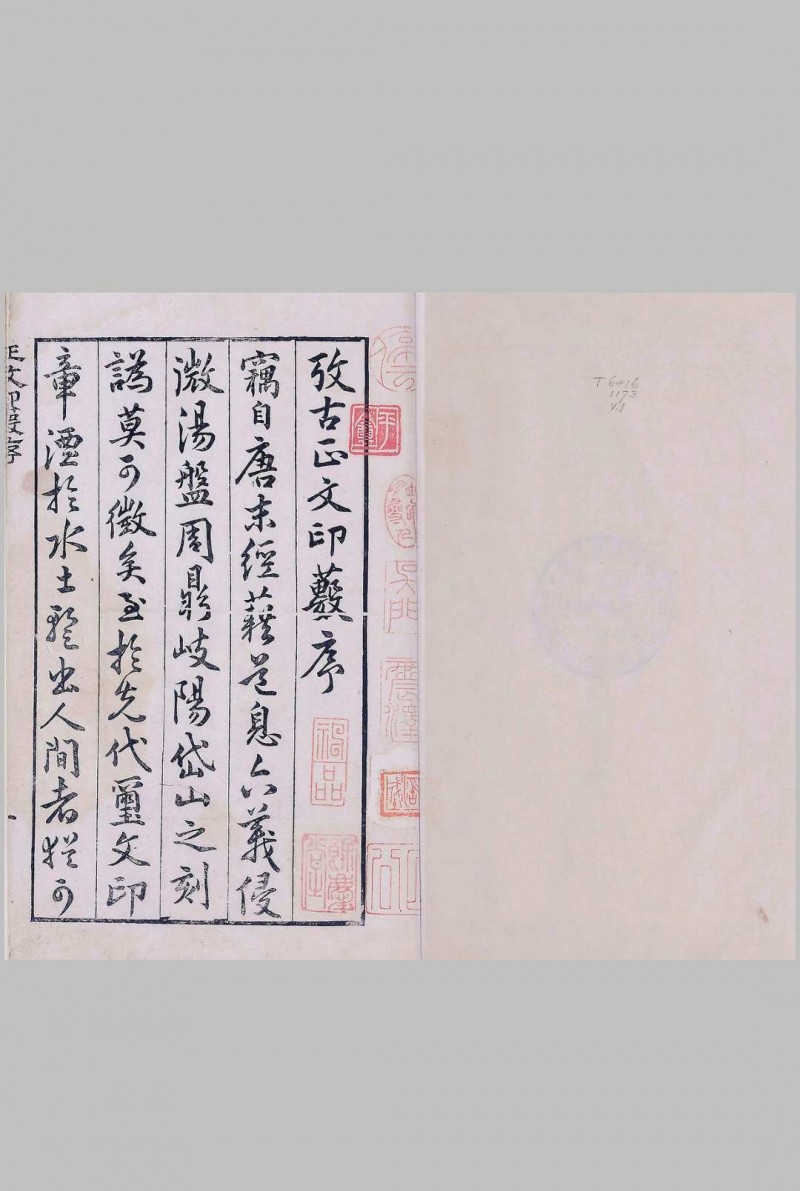 攷古正文印藪序
竊自唐末經藉芒息六義侵
微湯盤周鼎岐陽岱山之刻
譌莫可徵矣至於先代璽文印
章湮於水土踪出人間者猶可
正文印藪序
T 6416
1173
v.1
吳門
震澤
神品